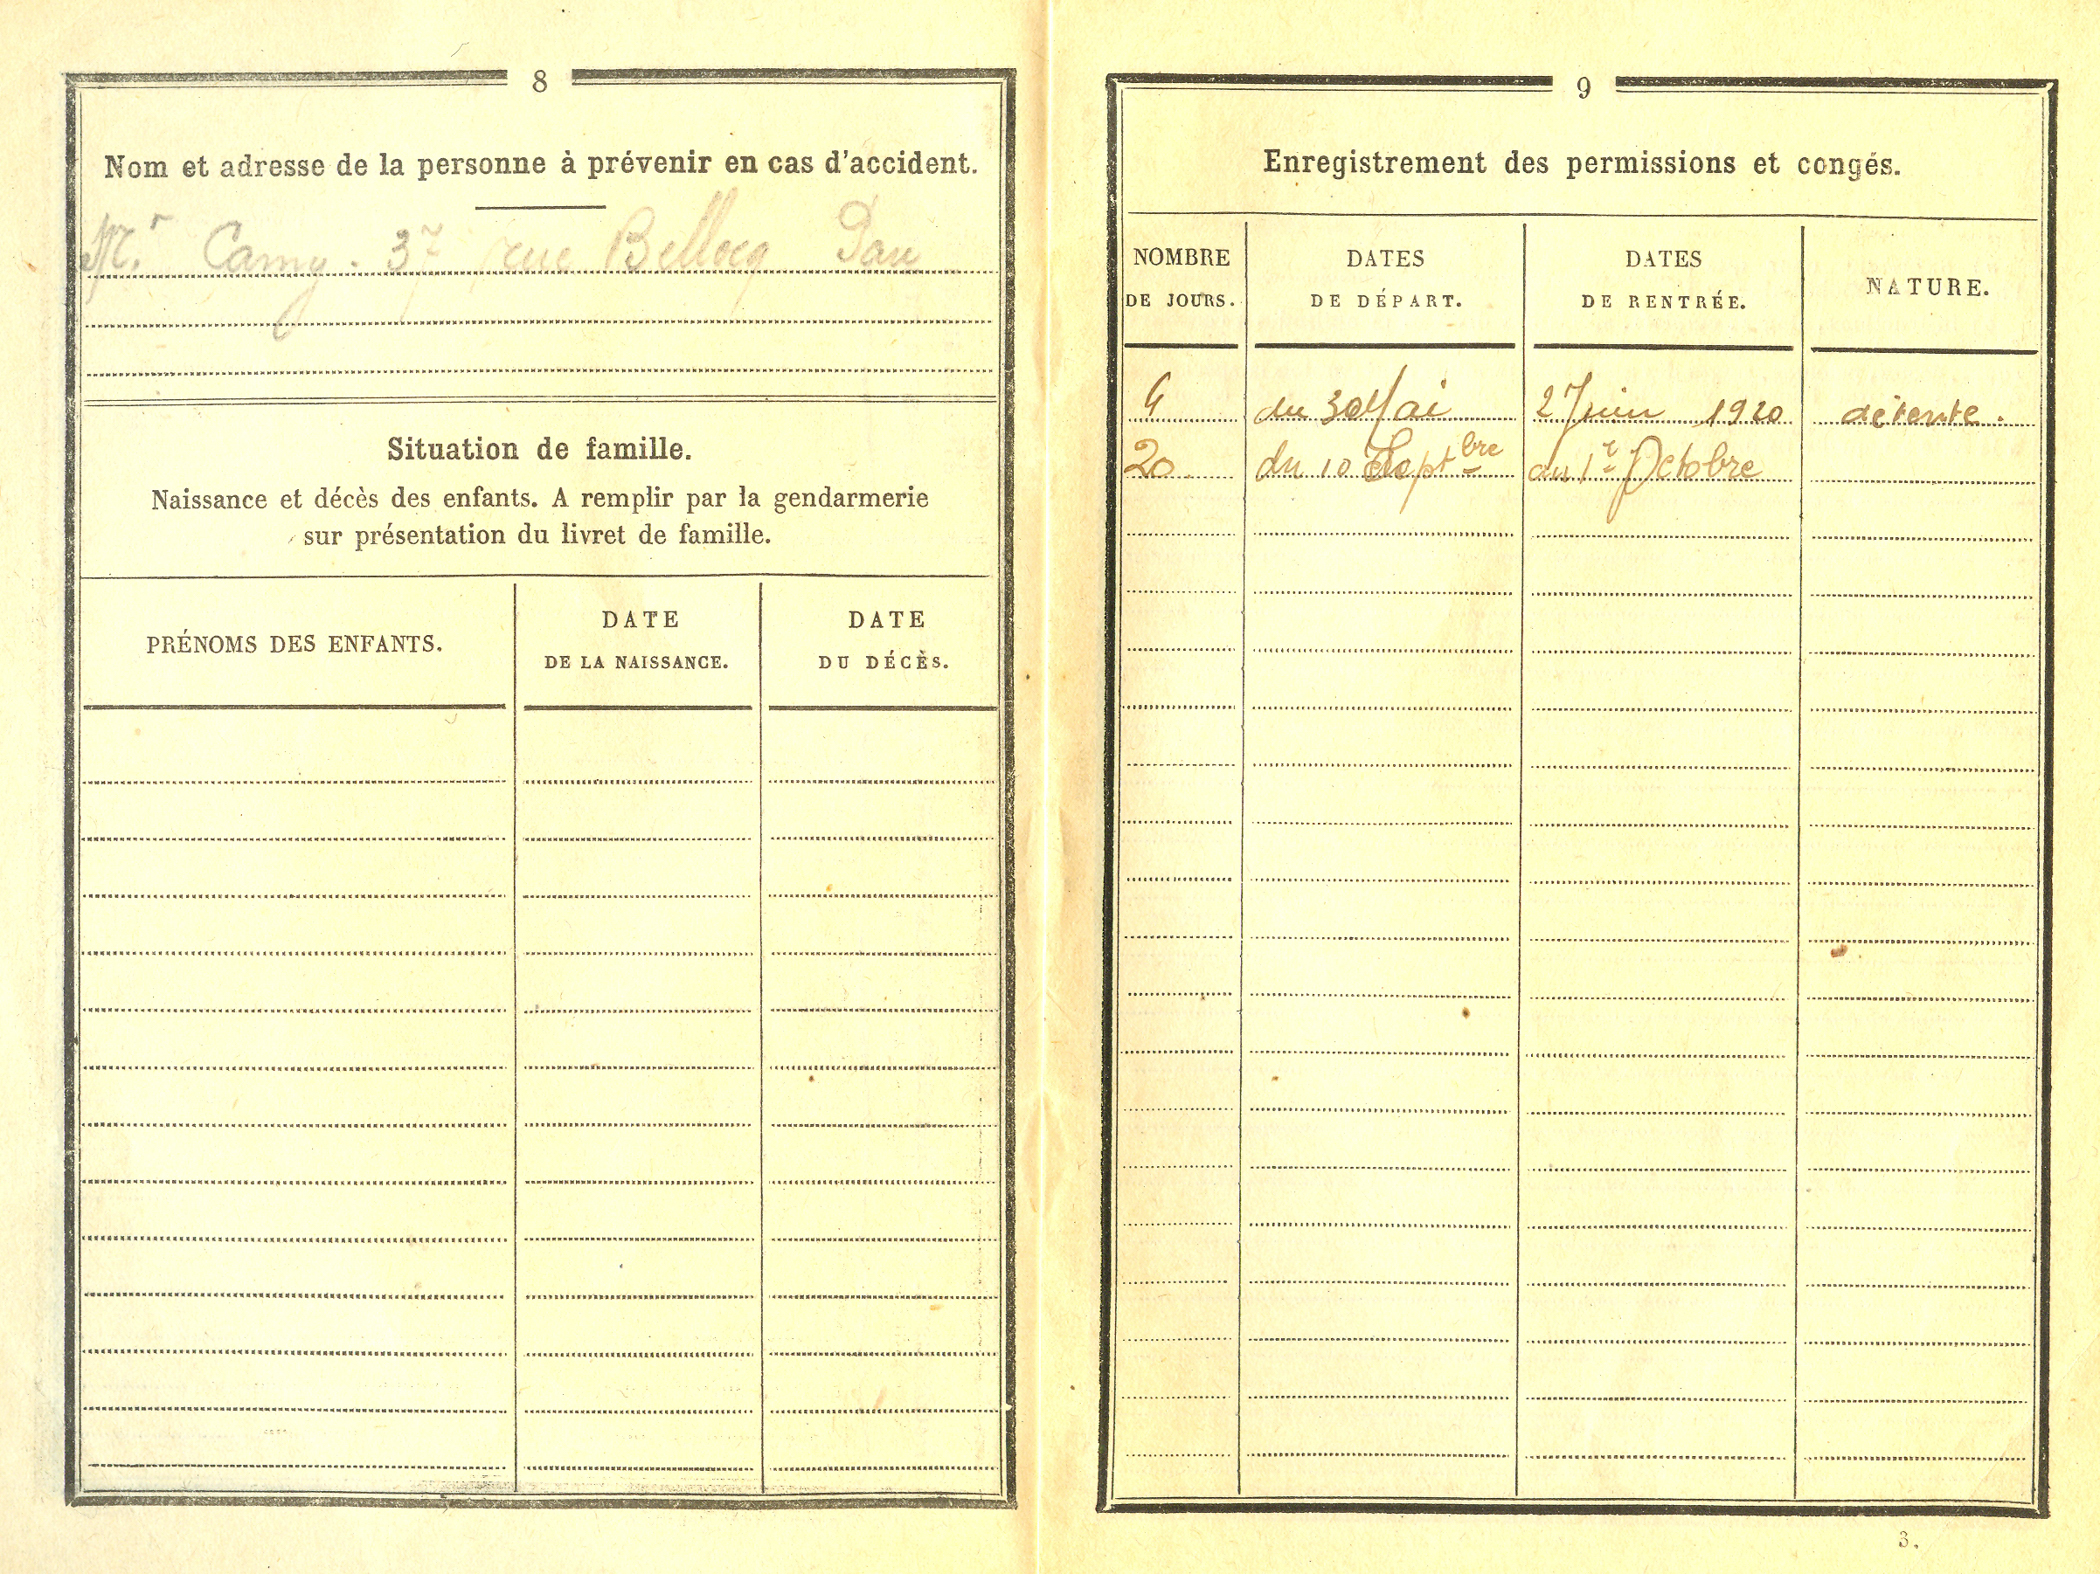 8
Nom et adresse de la personne à prévenir en cas d'accident.
Mr. Camy. 37 rue Bellocq Pau
Situation de famille.
Naissance et décès des enfants. A remplir par la gendarmerie
sur présentation du livret de famille.
PRÉNOMS DES ENFANTS.
DATE
DE LA NAISSANCE.
DATE
DU DÉCÈS.
9
Enregistrement des permissions et congés.
NOMBRE
DE JOURS.
DATES
DE DÉPART.
DATES
DE RENTRÉE.
NATURE.
4 du 30 Mai 2 Juin 1920 détente.
20 du 10 Septbre au 1er Octobre
3.